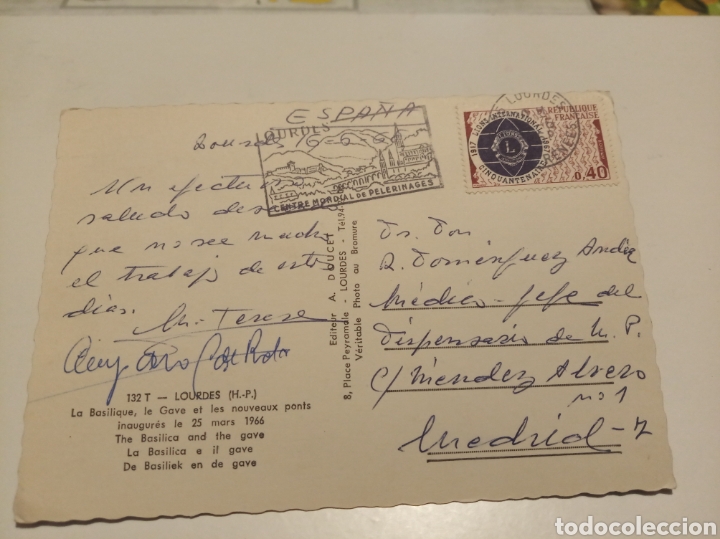 ESPAÑA
LOURDES
CENTRE MONDIAL DE PÈLERINAGES
LOURDES
RÉPUBLIQUE
FRANÇAISE
1917 LIONS INTERNATIONAL 1967
CINQUANTENAIRE
L
0,40
Lourdes 16-6-
Un afectuoso
saludo
que no sea mucho
el trabajo de estos
días.
Mª Teresa
Sr. Don
R. Domínguez
Médico-Jefe del
Dispensario de M. P.
C/ Mendez Alvaro
nº 1
Madrid-7
Editeur A. DOUCET
8, Place Peyramale - LOURDES - Tél.94
Véritable Photo au Bromure
132 T — LOURDES (H.-P.)
La Basilique, le Gave et les nouveaux ponts
inaugurés le 25 mars 1966
The Basilica and the gave
La Basilica e il gave
De Basiliek en de gave
todocoleccion